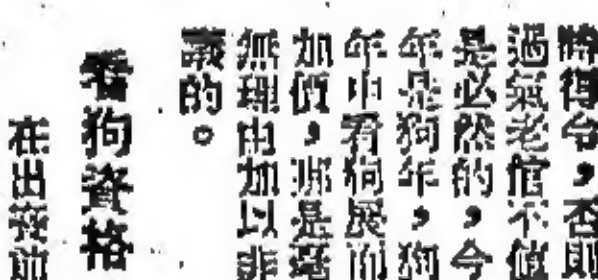 時得令,否則
過氣老倌不值
是必然的,今
年是狗年,狗
年中看狗展而
加價,那是毫
無理由加以非
議的。
看狗資格
在出發前